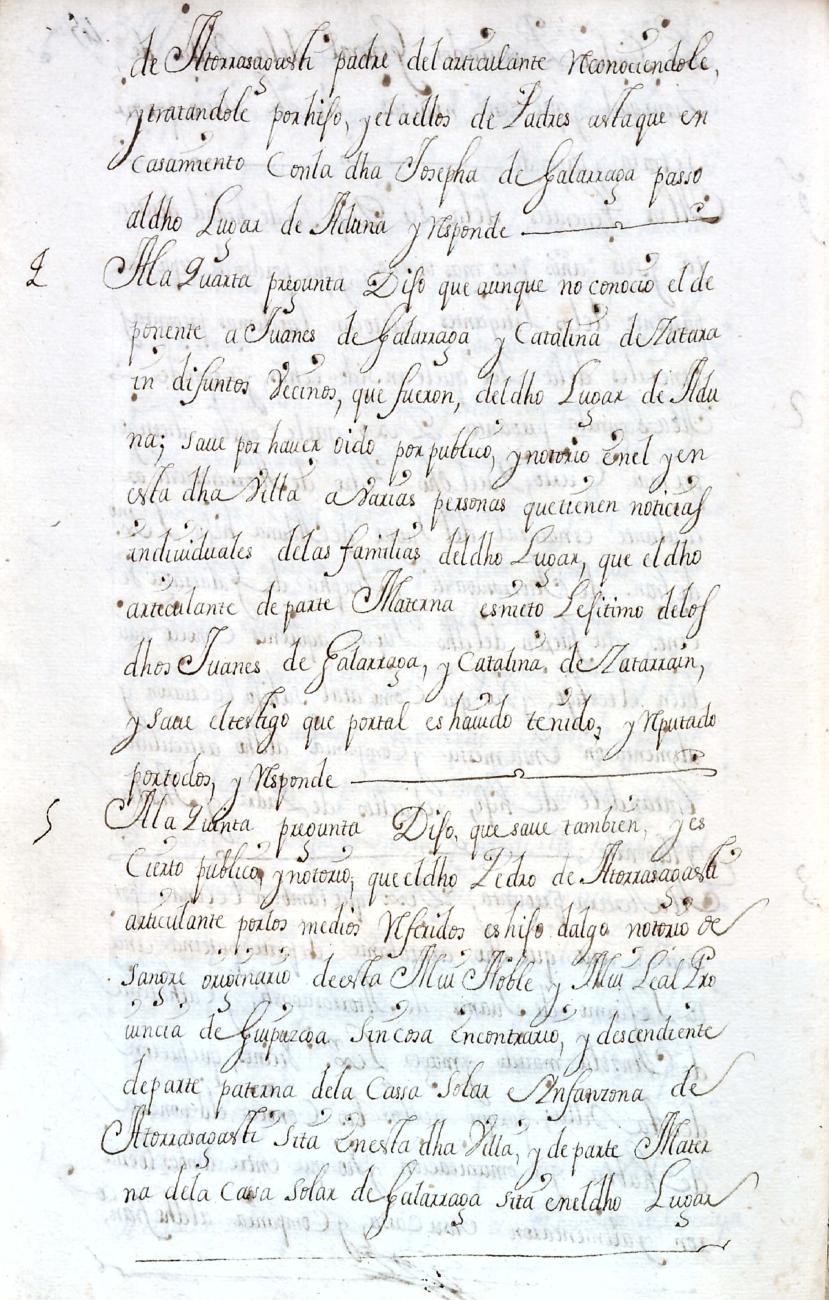 de Atorrasagasti padre del articulante Reconociendole,
y tratandole por hijo, y el a ellos de Padres asta que en
Casamiento Con la dha Josepha de Galarraga passo
al dho Lugar de Aduna y Responde
4 A la Quarta pregunta Dijo que aunque no conocio el de
ponente a Juanes de Galarraga y Catalina de Zatara
in difuntos Vecinos, que fueron, del dho Lugar de Adu
na; save por haver oido por publico, y notorio en el y en
esta dha Villa a varias personas que tienen noticias
individuales de las familias del dho Lugar, que el dho
articulante de parte Materna es nieto Lejitimo de los
dhos Juanes de Galarraga, y Catalina de Zatarrain,
y save el testigo que por tal es havido tenido, y Reputado
por todos, y Responde
5 A la Quinta pregunta Dijo, que save tambien, y es
Cierto publico, y notorio, que el dho Pedro de Atorrasagasti
articulante por los medios Referidos es hijo dalgo notorio de
sangre originario de esta Mui Noble y Mui Leal Pro
uincia de Guipuzcoa Sin cosa en contrario, y descendiente
de parte paterna de la Cassa Solar e Infanzona de
Atorrasagasti Sita en esta dha Villa, y de parte Mater
na de la Cassa Solar de Galarraga sita en el dho Lugar